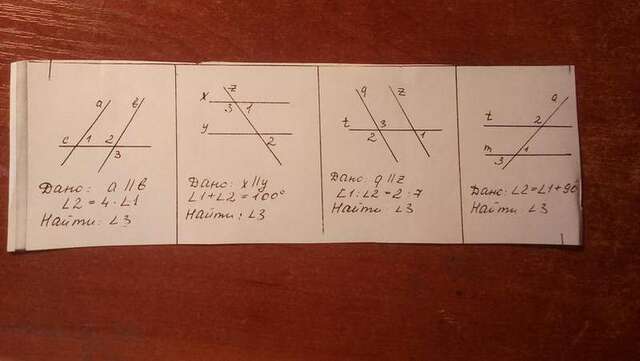 a b
c 1 2
3
Дано: a || b
∠2 = 4·∠1
Найти: ∠3
z
x 3 1
y
2
Дано: x || y
∠1+∠2 = 100°
Найти: ∠3
q z
t 3
2 1
Дано: q || z
∠1:∠2 = 2:7
Найти: ∠3
a
t 2
m
3 1
Дано: ∠2=∠1+90
Найти: ∠3